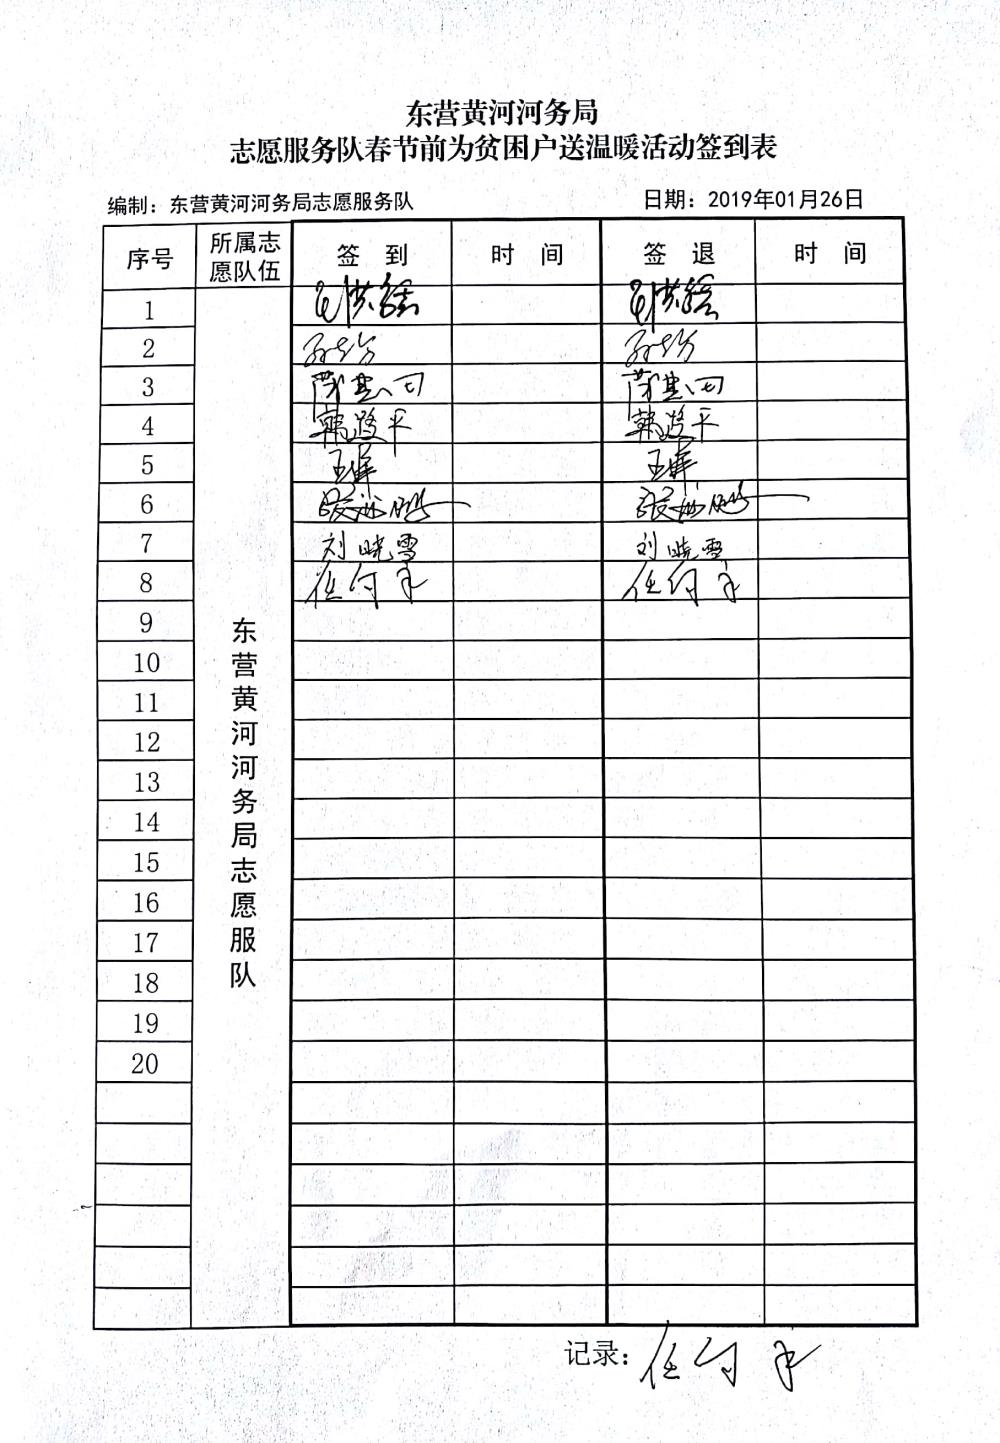 东营黄河河务局
志愿服务队春节前为贫困户送温暖活动签到表
编制：东营黄河河务局志愿服务队 日期：2019年01月26日
序号 所属志愿队伍 签 到 时 间 签 退 时 间
1
2
3
4 韩 平 韩 平
5 王 王
6
7 刘晓雪 刘晓雪
8 任 任
9
10
11
12
13
14
15
16
17
18
19
20
东营黄河河务局志愿服队
记录：任